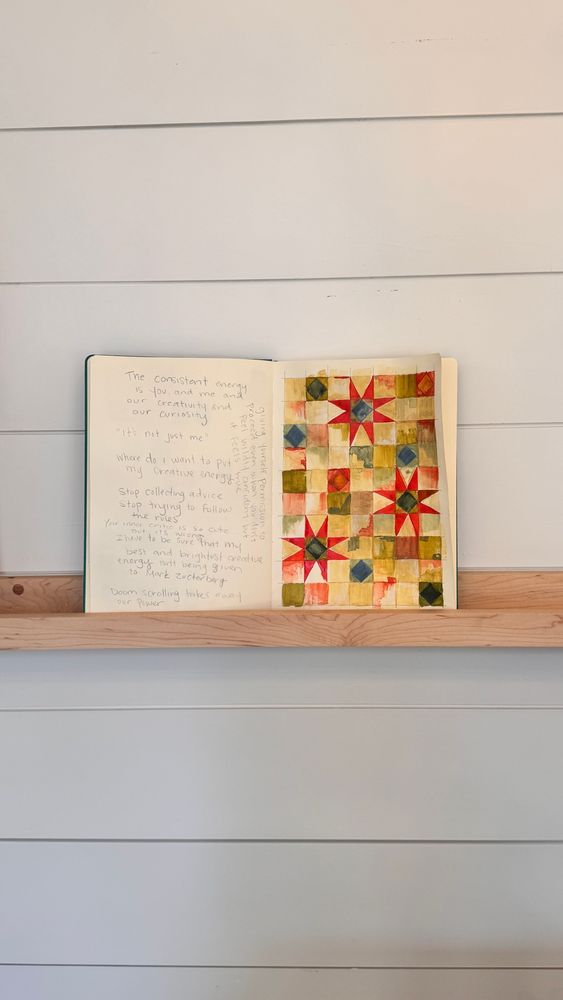 The consistent energy
is you and me and
our creativity and
our curiosity
"It's not just me"
Where do I want to put
my creative energy
Stop collecting advice
stop trying to follow
the rules
Your inner critic is so cute
but its wrong
I have to be sure that my
best and brightest creative
energy isn't being given
to Mark Zucterberg
Doom scrolling takes away
our power
Giving himself permission to
proceed even when